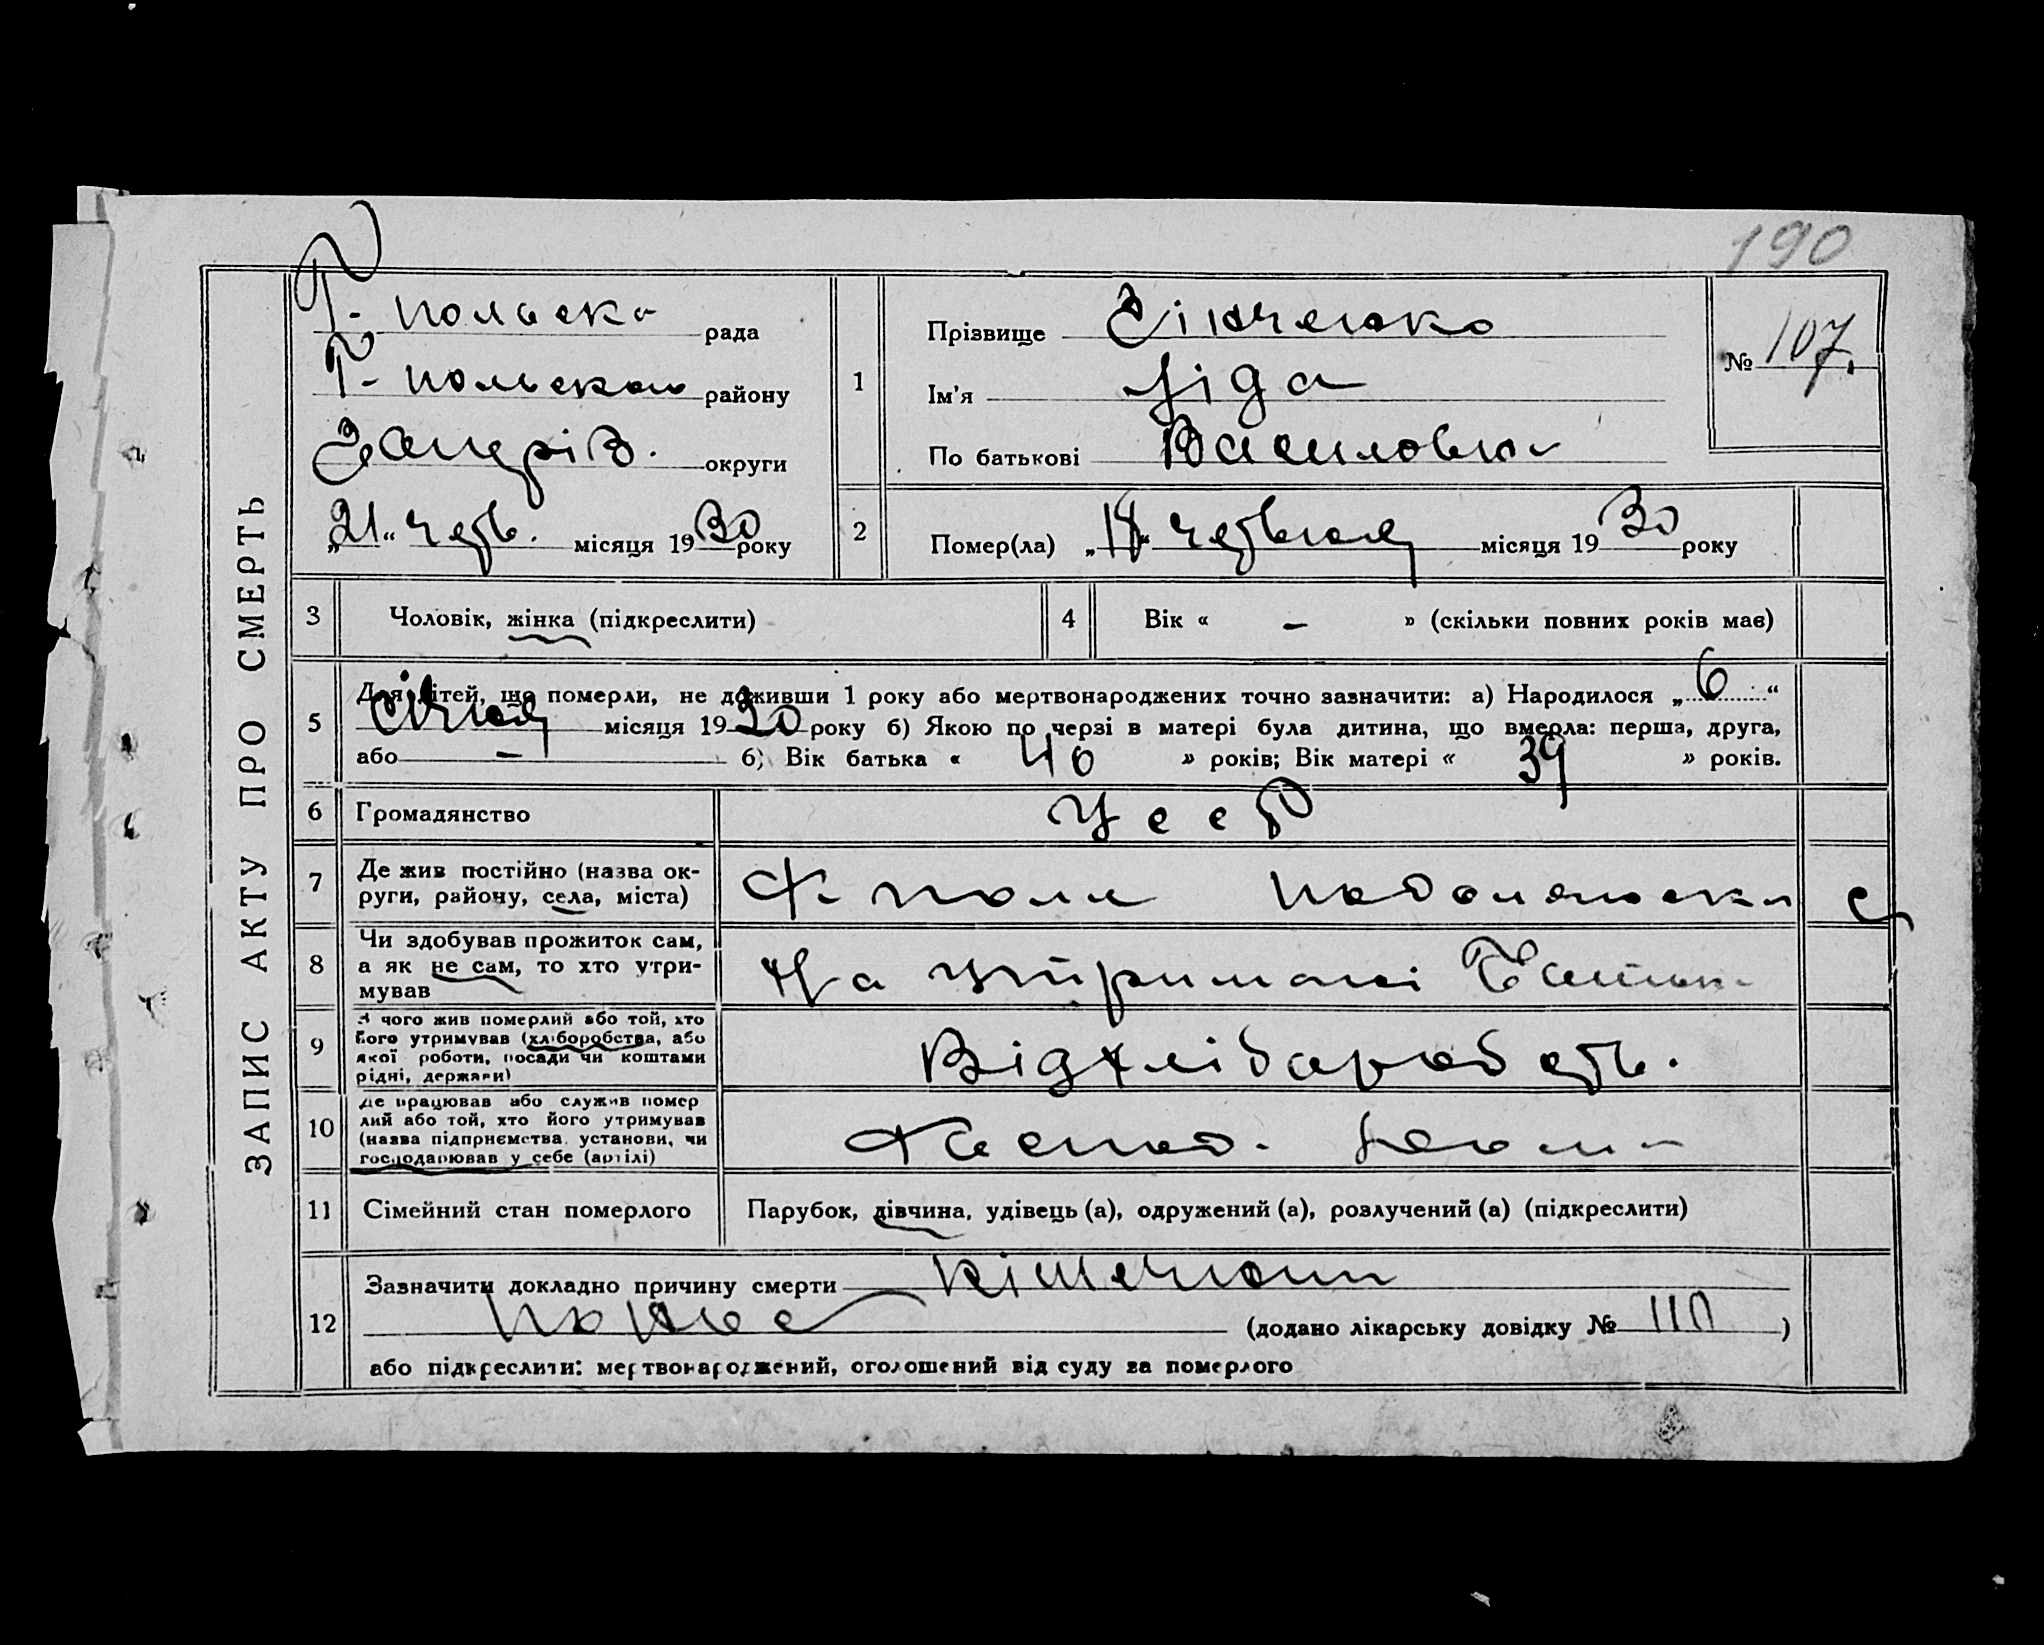 190
ЗАПИС АКТУ ПРО СМЕРТЬ
Г-польска рада
Г-польского району
Запоріз. округи
„21“ черв. місяця 1930 року
1
Прізвище Зінченко
Ім'я Ліда
По батькові Василовна
№ 107.
2
Помер(ла) „18“ червня місяця 1930 року
3
Чоловік, жінка (підкреслити)
4
Вік « – » (скільки повних років має)
5
Для дітей, що померли, не доживши 1 року або мертвонароджених точно зазначити: а) Народилося „6“
січня місяця 1930 року б) Якою по черзі в матері була дитина, що вмерла: перша, друга,
або – б) Вік батька « 40 » років; Вік матері « 39 » років.
6
Громадянство
УССР
7
Де жив постійно (назва ок-
руги, району, села, міста)
8
Чи здобував прожиток сам,
а як не сам, то хто утри-
мував
На утримані батька
9
З чого жив померлий або той, хто
його утримував (хліборобства, або
якої роботи, посади чи коштами
рідні, держави)
Від хліборобств.
10
Де працював або служив помер
лий або той, хто його утримував
(назва підприємства, установи, чи
господарював у себе (артілі)
Господ. вдома
11
Сімейний стан померлого
Парубок, дівчина, удівець (а), одружений (а), розлучений (а) (підкреслити)
12
Зазначити докладно причину смерти кішечний
понос
(додано лікарську довідку № 110)
або підкреслити: мертвонароджений, оголошений від суду за померлого